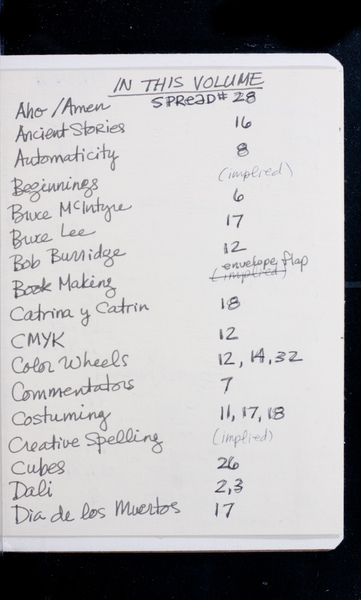 IN THIS VOLUME
Aho/Amen SPREAD# 28
Ancient Stories 16
Automaticity 8
Beginnings (implied)
Bruce McIntyre 6
Bruce Lee 17
Bob Burridge 12
Book Making envelope, flap (implied)
Catrina y Catrin 18
CMYK 12
Color Wheels 12, 14, 32
Commentators 7
Costuming 11, 17, 18
Creative Spelling (implied)
Cubes 26
Dali 2,3
Dia de los Muertos 17